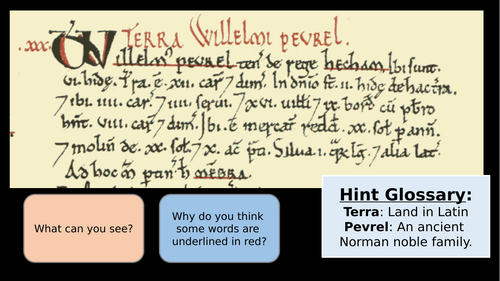 .xxx. TERRA Willelmi pevrel.
Willelm pevrel ten de rege hecham Ibi sunt.
vi. hide. Tra. e. xii. car 7 dim. In dnio st. ii. hide dehac tra.
7 ibi. iiii. car. 7 iiii. servi. 7 xvi. uilli 7 x. bord cu pbro
hnt. viii. car 7 dim. Ibi. e mercat redd. xx. sol p ann.
7 molin de. xx. sol. 7 x. ac pti. Silua. i. lg. 7 alia lat.
Ad hoc p h
What can you see?
Why do you think
some words are
underlined in red?
Hint Glossary:
Terra: Land in Latin
Pevrel: An ancient
Norman noble family.